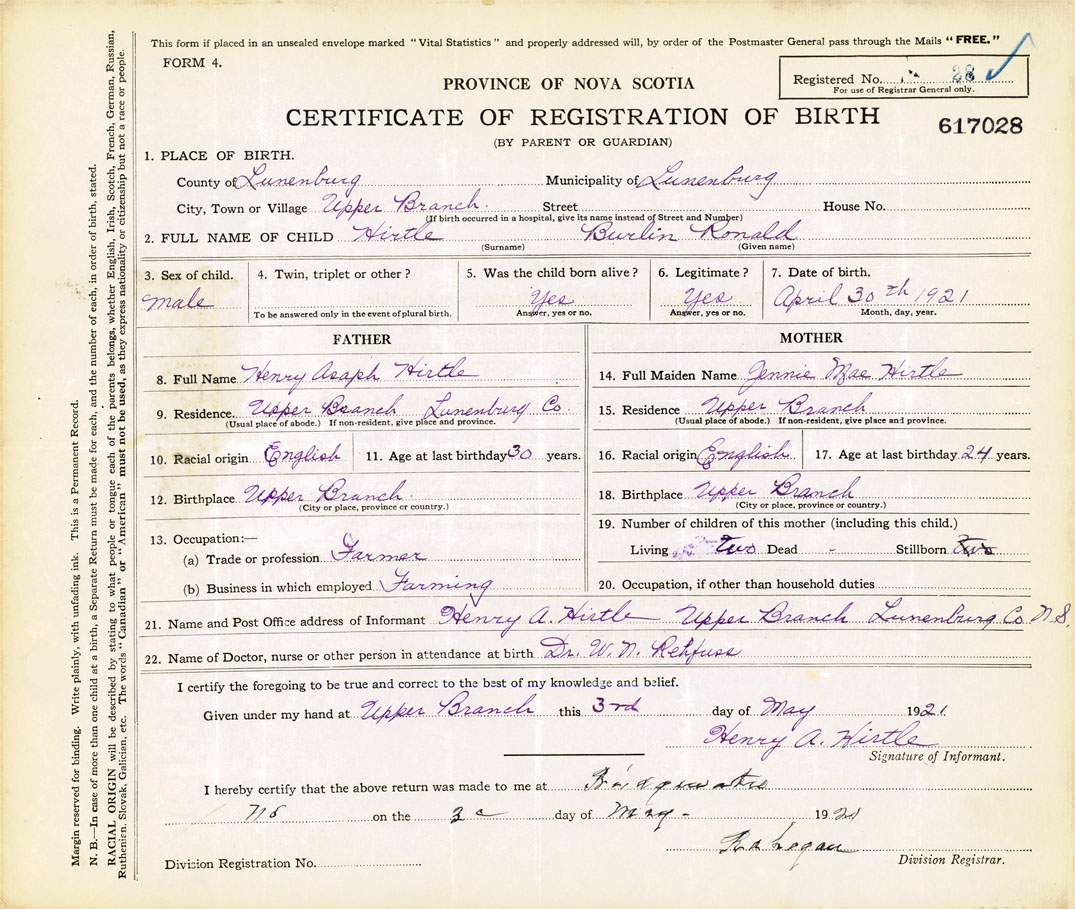 This form if placed in an unsealed envelope marked "Vital Statistics" and properly addressed will, by order of the Postmaster General pass through the Mails "FREE."
FORM 4.
Registered No. 28
For use of Registrar General only.
PROVINCE OF NOVA SCOTIA
CERTIFICATE OF REGISTRATION OF BIRTH
617028
(BY PARENT OR GUARDIAN)
1. PLACE OF BIRTH.
County of Lunenburg Municipality of Lunenburg
City, Town or Village Upper Branch. Street House No.
(If birth occurred in a hospital, give its name instead of Street and Number)
2. FULL NAME OF CHILD Hirtle Burlin Ronald
(Surname) (Given name)
3. Sex of child. 4. Twin, triplet or other? 5. Was the child born alive? 6. Legitimate? 7. Date of birth.
male Yes Yes April 30th 1921
To be answered only in the event of plural birth. Answer, yes or no. Answer, yes or no. Month, day, year.
FATHER
8. Full Name Henry Asaph Hirtle
9. Residence. Upper Branch Lunenburg Co.
(Usual place of abode.) If non-resident, give place and province.
10. Racial origin English 11. Age at last birthday 30 years.
12. Birthplace Upper Branch.
(City or place, province or country.)
13. Occupation:—
(a) Trade or profession Farmer
(b) Business in which employed Farming
MOTHER
14. Full Maiden Name Jennie Mae Hirtle
15. Residence Upper Branch
(Usual place of abode.) If non-resident, give place and province.
16. Racial origin English 17. Age at last birthday 24 years.
18. Birthplace Upper Branch
(City or place, province or country.)
19. Number of children of this mother (including this child.)
Living two Dead - Stillborn two
20. Occupation, if other than household duties
21. Name and Post Office address of Informant Henry A. Hirtle Upper Branch Lunenburg Co. N.S.
22. Name of Doctor, nurse or other person in attendance at birth Dr. W. N. Rehfuss
I certify the foregoing to be true and correct to the best of my knowledge and belief.
Given under my hand at Upper Branch this 3rd day of May 1921.
Henry A. Hirtle
Signature of Informant.
I hereby certify that the above return was made to me at Bridgewater
NS on the 3 day of May - 1921
Division Registration No. Division Registrar.
Margin reserved for binding. Write plainly, with unfading ink. This is a Permanent Record.
N. B.—In case of more than one child at a birth, a Separate Return must be made for each, and the number of each, in order of birth, stated.
RACIAL ORIGIN will be described by stating to what people or tongue each of the parents belongs, whether English, Irish, Scotch, French, German, Russian,
Ruthenian, Slovak, Galician, etc. The words "Canadian" or "American" must not be used, as they express nationality or citizenship but not a race or people.